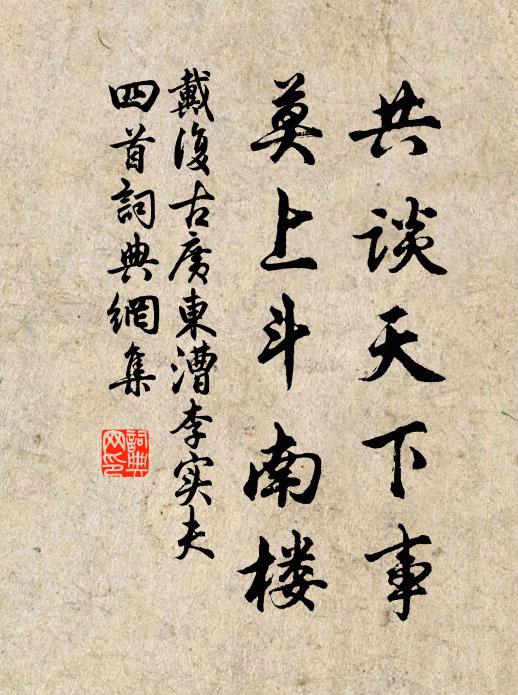 共谈天下事
莫上斗南楼
戴復古廣東漕李实夫
四首詞典網集
詞典
网印